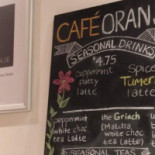 CAFÉ ORAN
SEASONAL DRINKS
$4.75
peppermint
patty
latte
Spice
Tumer
latte
peppermint
white choc
tea latte
the Grinch
(Matcha
white choc
tea latte)
SEASONAL TEAS